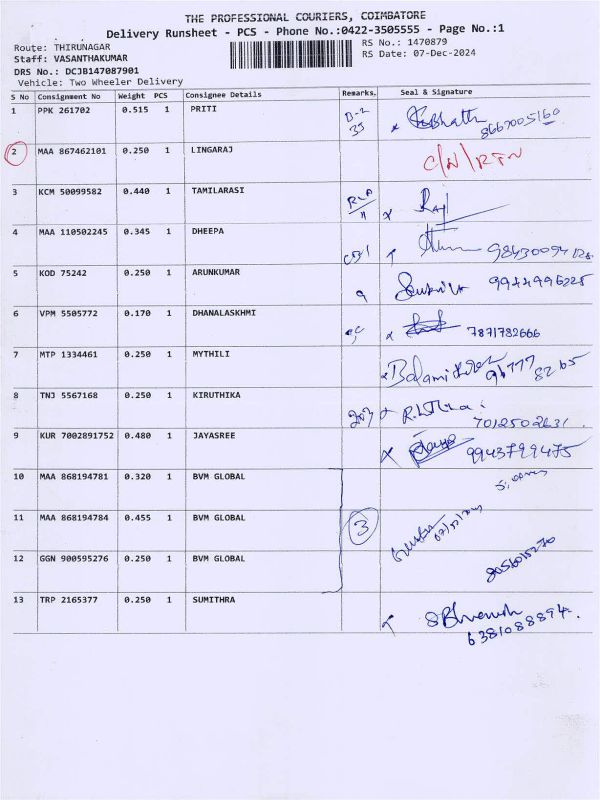 THE PROFESSIONAL COURIERS, COIMBATORE
Delivery Runsheet - PCS - Phone No.:0422-3505555 - Page No.:1
Route: THIRUNAGAR
RS No.: 1470879
Staff: VASANTHAKUMAR
RS Date: 07-Dec-2024
DRS No.: DCJB147087901
Vehicle: Two Wheeler Delivery
S No Consignment No Weight PCS Consignee Details Remarks. Seal & Signature
1 PPK 261702 0.515 1 PRITI D-2 35 x 8667005160
2 MAA 867462101 0.250 1 LINGARAJ C/N/RTN
3 KCM 50099582 0.440 1 TAMILARASI x Raj
4 MAA 110502245 0.345 1 DHEEPA
5 KOD 75242 0.250 1 ARUNKUMAR 9 9944996225
6 VPM 5505772 0.170 1 DHANALASKHMI x 7871782666
7 MTP 1334461 0.250 1 MYTHILI
8 TNJ 5567168 0.250 1 KIRUTHIKA 7012502631
9 KUR 7002891752 0.480 1 JAYASREE x 9943799475
10 MAA 868194781 0.320 1 BVM GLOBAL
11 MAA 868194784 0.455 1 BVM GLOBAL 3
12 GGN 900595276 0.250 1 BVM GLOBAL
13 TRP 2165377 0.250 1 SUMITHRA 6381088894